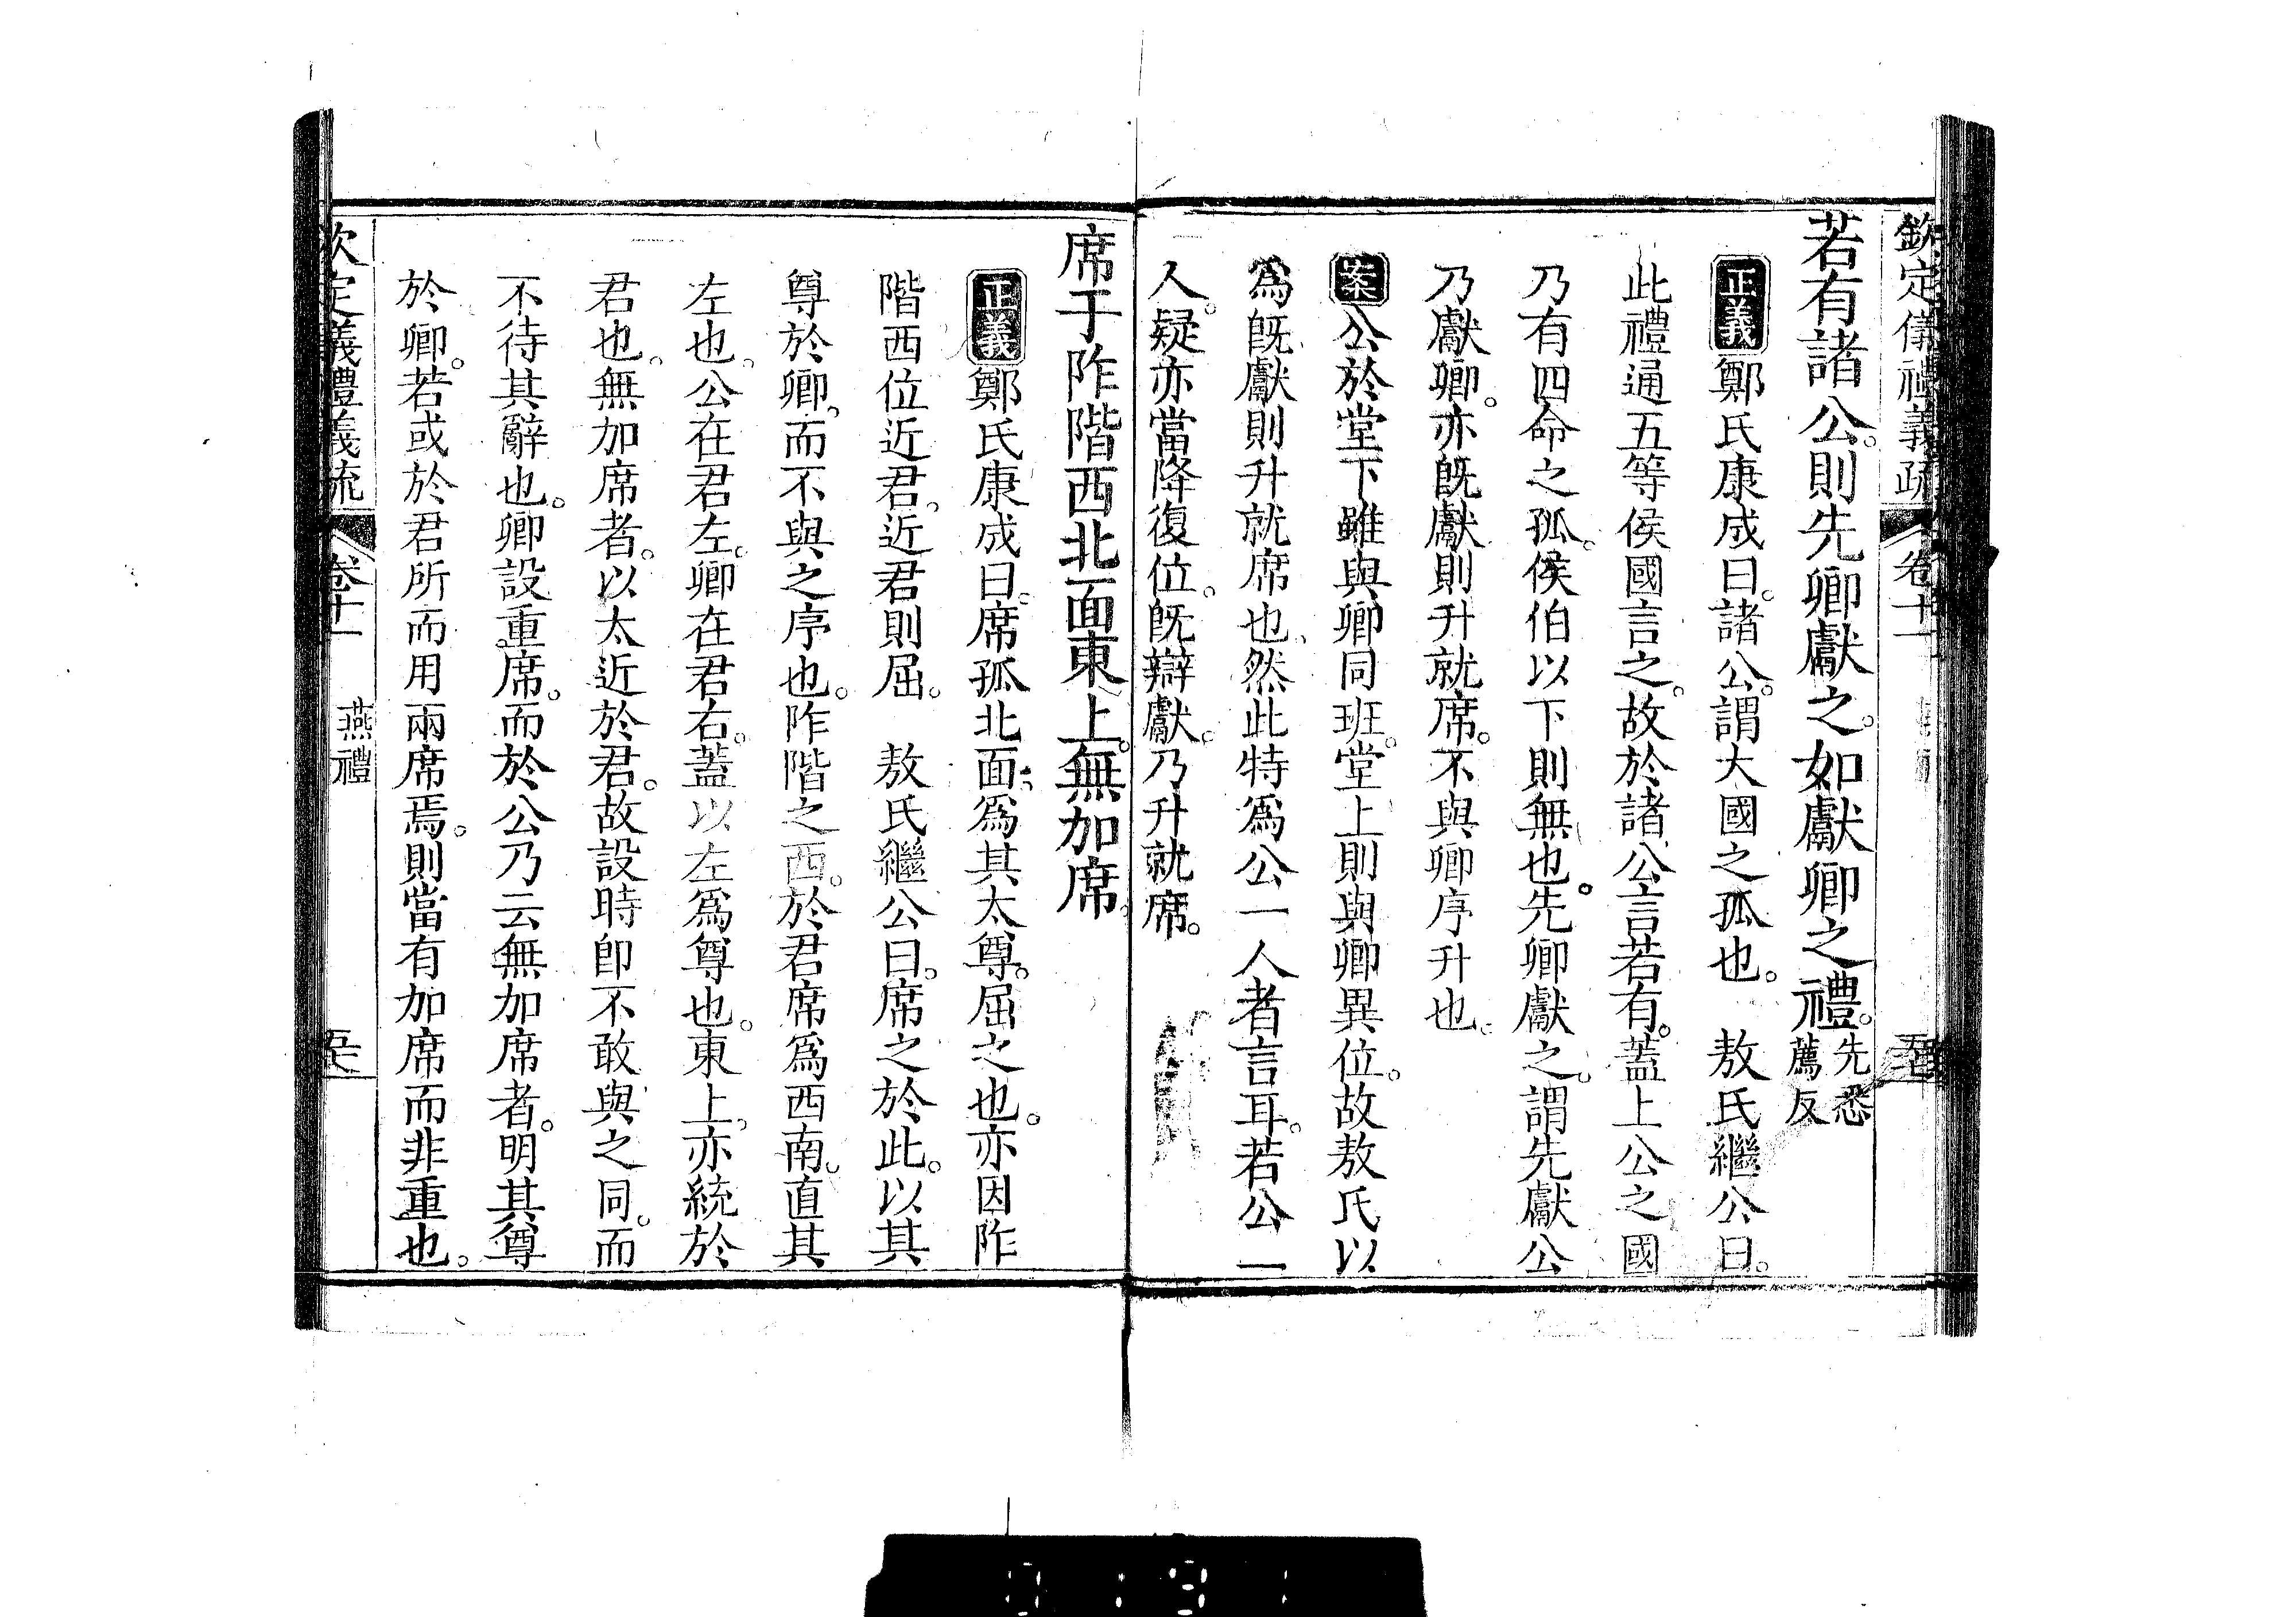 欽定儀禮義疏 卷十一
若有諸公。則先卿獻之。如獻卿之禮。先悉薦反
正義鄭氏康成曰。諸公。謂大國之孤也。 敖氏繼公曰。
此禮通五等侯國言之。故於諸公言若有。蓋上公之國
乃有四命之孤。侯伯以下則無也。先卿獻之。謂先獻公
乃獻卿。亦既獻則升就席。不與卿序升也。
案公於堂下雖與卿同班。堂上則與卿異位。故敖氏以
為既獻則升就席也。然此特為公一人者言耳。若公一
人。疑亦當降復位。既辯獻。乃升就席。
席于阼階西北面東上。無加席。
正義鄭氏康成曰。席孤北面。為其太尊。屈之也。亦因阼
階西位近君。近君則屈。 敖氏繼公曰。席之於此。以其
尊於卿。而不與之序也。阼階之西。於君席為西南。直其
左也。公在君左。卿在君右。蓋以左為尊也。東上。亦統於
君也。無加席者。以太近於君。故設時卽不敢與之同。而
不待其辭也。卿設重席。而於公乃云無加席者。明其尊
於卿。若或於君所而用兩席焉。則當有加席而非重也。
欽定義禮義疏 卷十一 燕禮